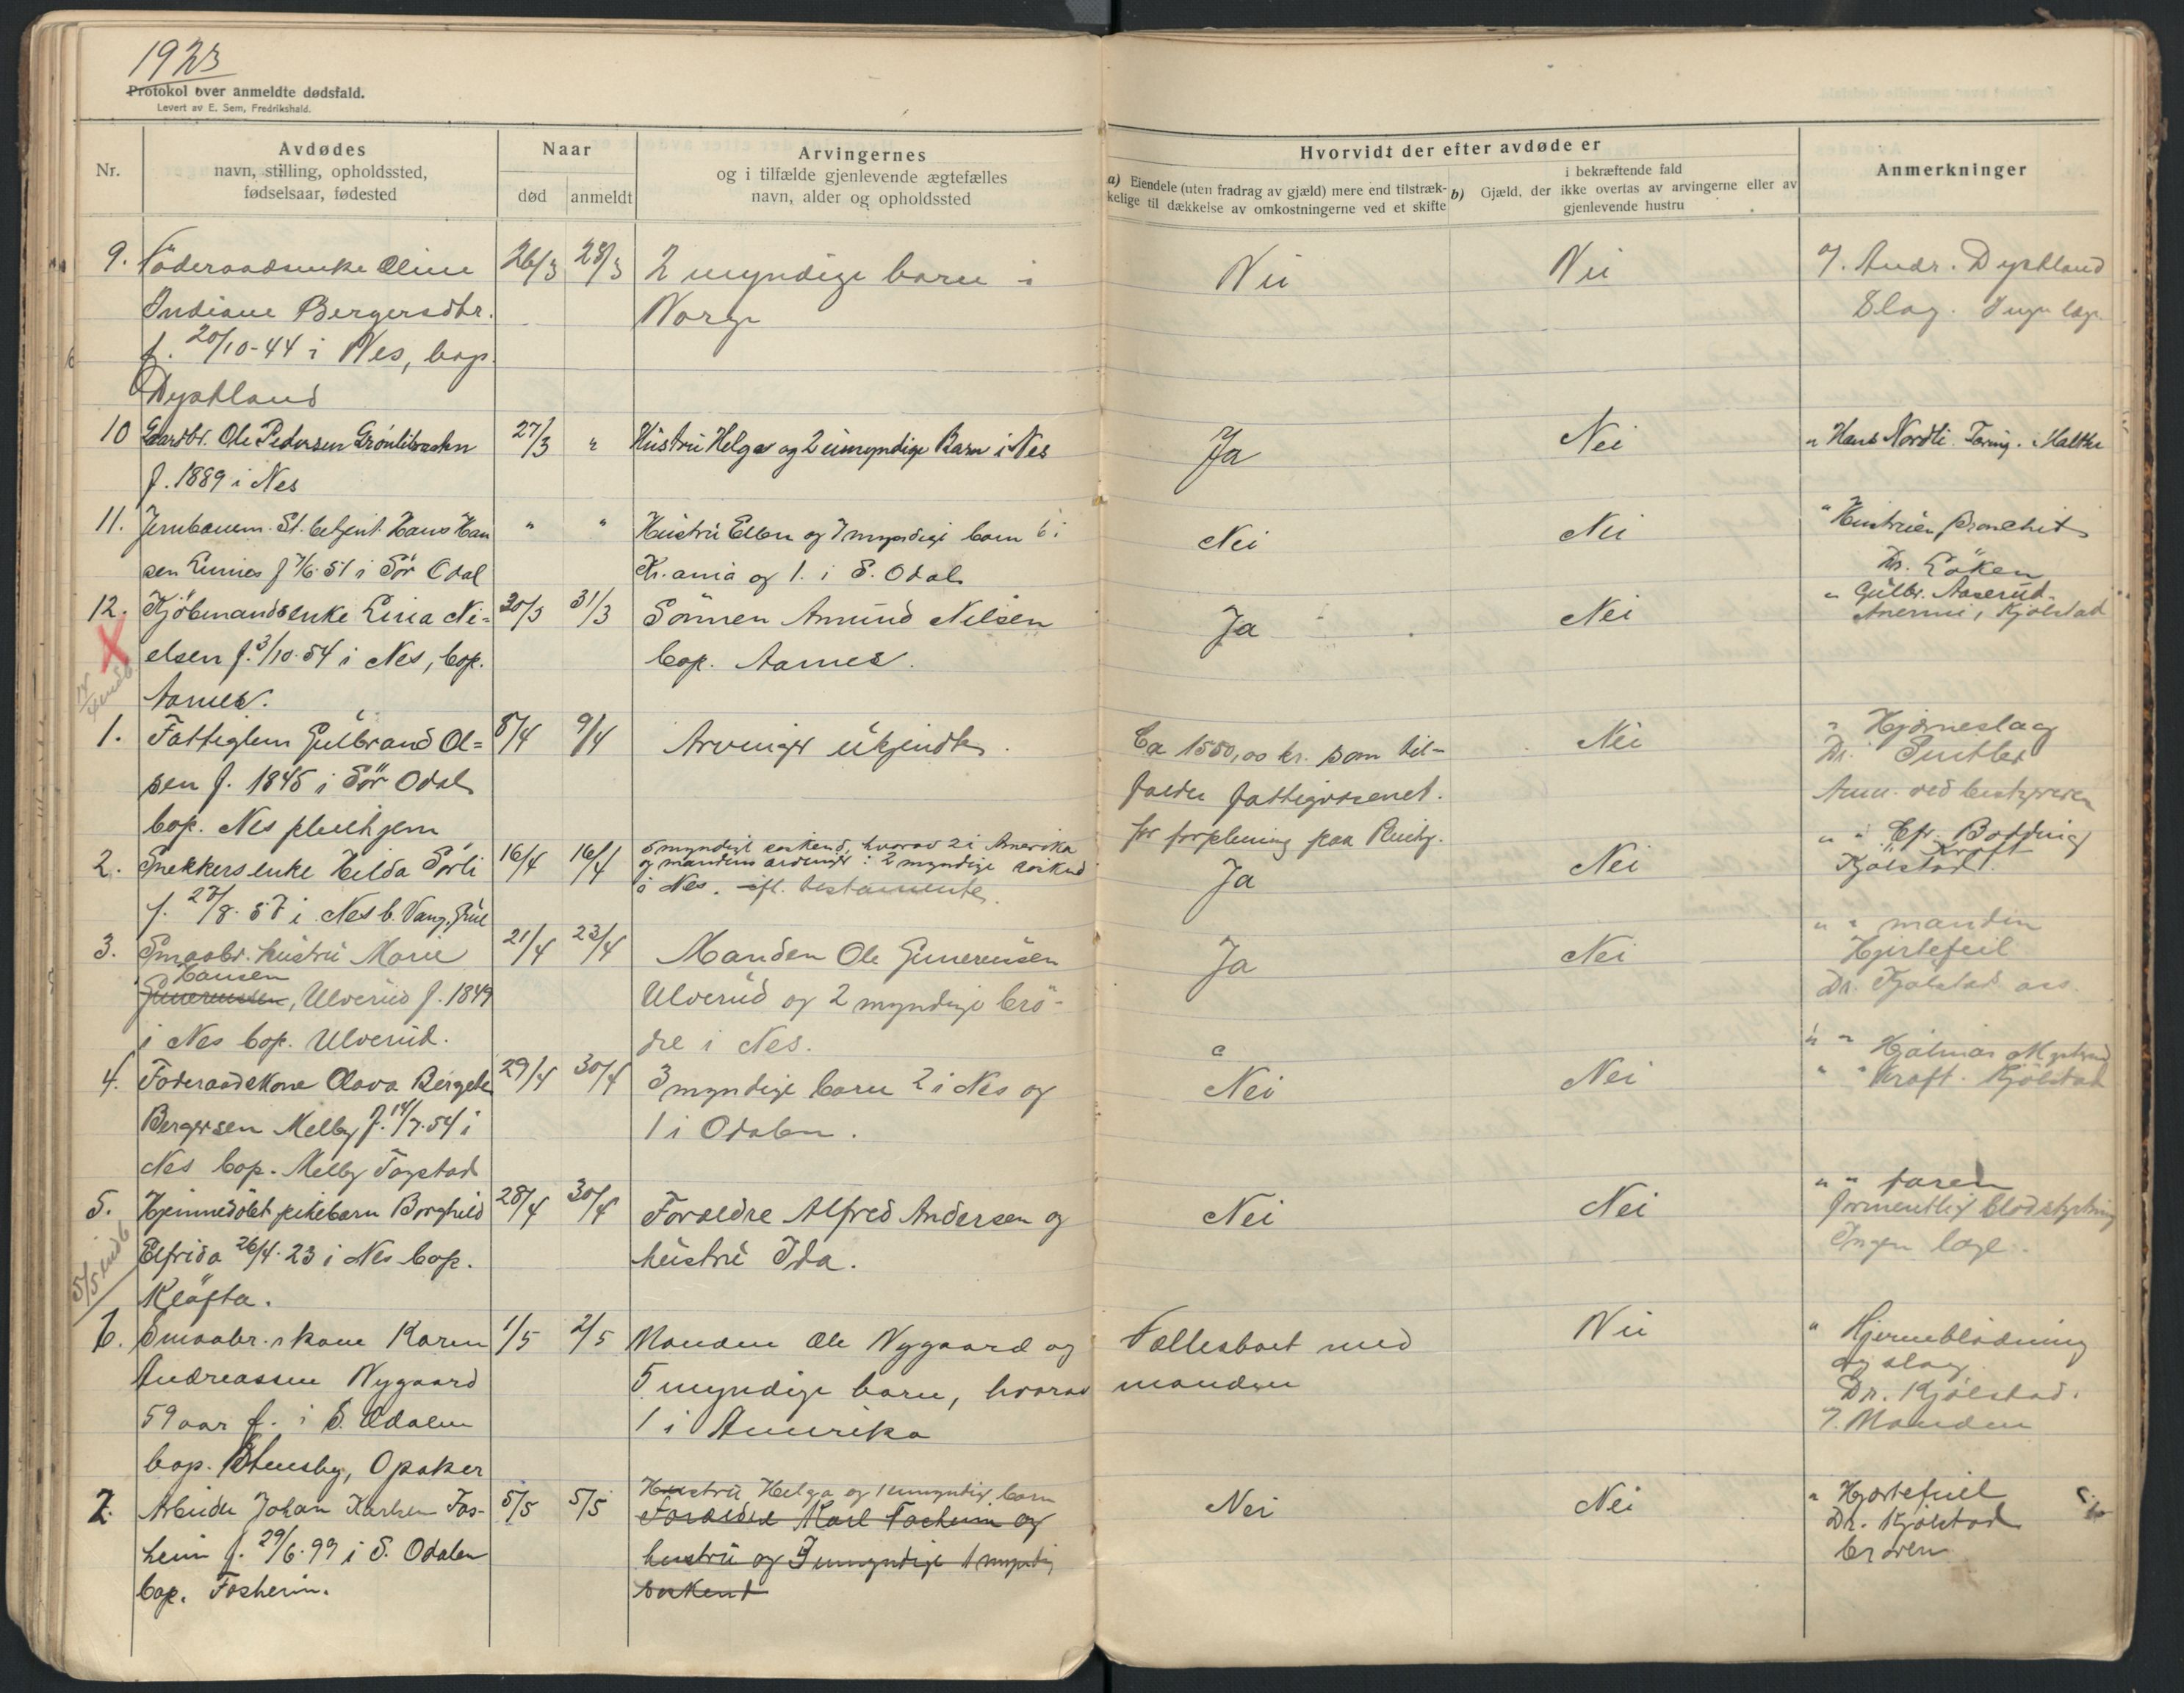 1923
Protokol over anmeldte dødsfald.
Levert av E. Sem, Fredrikshald.
Nr.
Avdødes
navn, stilling, opholdssted,
fødselsaar, fødested
Naar
død
anmeldt
Arvingernes
og i tilfælde gjenlevende ægtefælles
navn, alder og opholdssted
Hvorvidt der efter avdøde er
a) Eiendele (uten fradrag av gjæld) mere end tilstræk-
kelige til dækkelse av omkostningerne ved et skifte
i bekræftende fald
b) Gjæld, der ikke overtas av arvingerne eller av
gjenlevende hustru
Anmerkninger
9. Föderaadsenke Oline 26/3 28/3 2 myndige barn i Nei Nei Andr. Dystland
Indiane Bergersdtr. Norge Slag. Ingen læge
f. 20/10-44 i Nes, bop.
Dystland
10 Gaardbr. Ole Pedersen 27/3 " Hustru Helga og 2 umyndige Barn i Nes Ja Nei " Hans Nordli
f. 1889 i Nes
11. Jernbanem. St. betjent Hans Han " " Hustru Ellen og 7 myndige barn 6 i Nei Nei " Hustruen bronchit
sen f 7/6-51 i Sör Odal Kr.ania og 1. i S. Odal Dr. Löken
12. Kjöbmandsenke Lina Ni= 30/3 31/3 Sönnen Amund Nilsen Ja Nei " Gulbr. Aaserud
elsen f. 3/10-54 i Nes, bop. bop. Aarnes. Anemi, Kjölstad
Aarnes.
1. Fattiglem Gulbrand Ol= 8/4 9/4 Arvinger ukjendt. Ca 1550,00 kr. som til- Nei " Hjerneslag
sen f. 1845 i Sör Odal falder fattigvæsenet. Dr.
bop. Nes pleiehjem for forpleining paa Anm. ved bestyreren
2. Snekkers enke Hilda Sörli 16/4 16/4 5 myndige söskend, hvorav 2 i Amerika Ja Nei
og mandens arvinger: 2 myndige söskend Kjölstad
f. 27/8-57 i Nes b. Vang i Nes. ifl. testamente.
3. Smaabr. hustru Marie 21/4 23/4 Manden Ole Gunerussen Ja Nei " " manden
Hansen Hjertefeil
Gunerussen, Ulverud f. 1849 Ulverud og 2 myndige brö- Dr. Kjölstad
i Nes bop. Ulverud. dre i Nes.
4. Föderaadskone Olava Bergete 29/4 30/4 3 myndige barn 2 i Nes og Nei Nei " " Hjalmar
Bergersen Melby f. 14/7-54 i 1 i Odalen. " " Kraft. Kjölstad
Nes bop. Melby Fogstad
5. Hjemmedöbt pikebarn Borghild 28/4 30/4 Foreldre Alfred Andersen og Nei Nei " " faren
Elfrida 26/4-23 i Nes bop. hustru Ida. formentlig blodstyrtning
Klöfta. Ingen læge.
6. Smaabr.s kone Karen 1/5 2/5 Manden Ole Nygaard og Fællesboet med Nei " Hjerneblödning
Andreassen Nygaard 5 myndige barn, hvorav manden og slag.
59 aar f. i S. Odalen 1 i Amerika Dr. Kjölstad.
bop. Stensby, Opaker Manden
7. Arbeider Johan Karlsen Fos- 5/5 5/5 Hustru Helga og 1 umyndig barn Nei Nei " Hjertefeil
heim f. 29/6-99 i S. Odalen Foreldre Karl Fosheim og Dr. Kjölstad
bop. Fosheim. hustru og umyndige 1 myndig broren
söskend